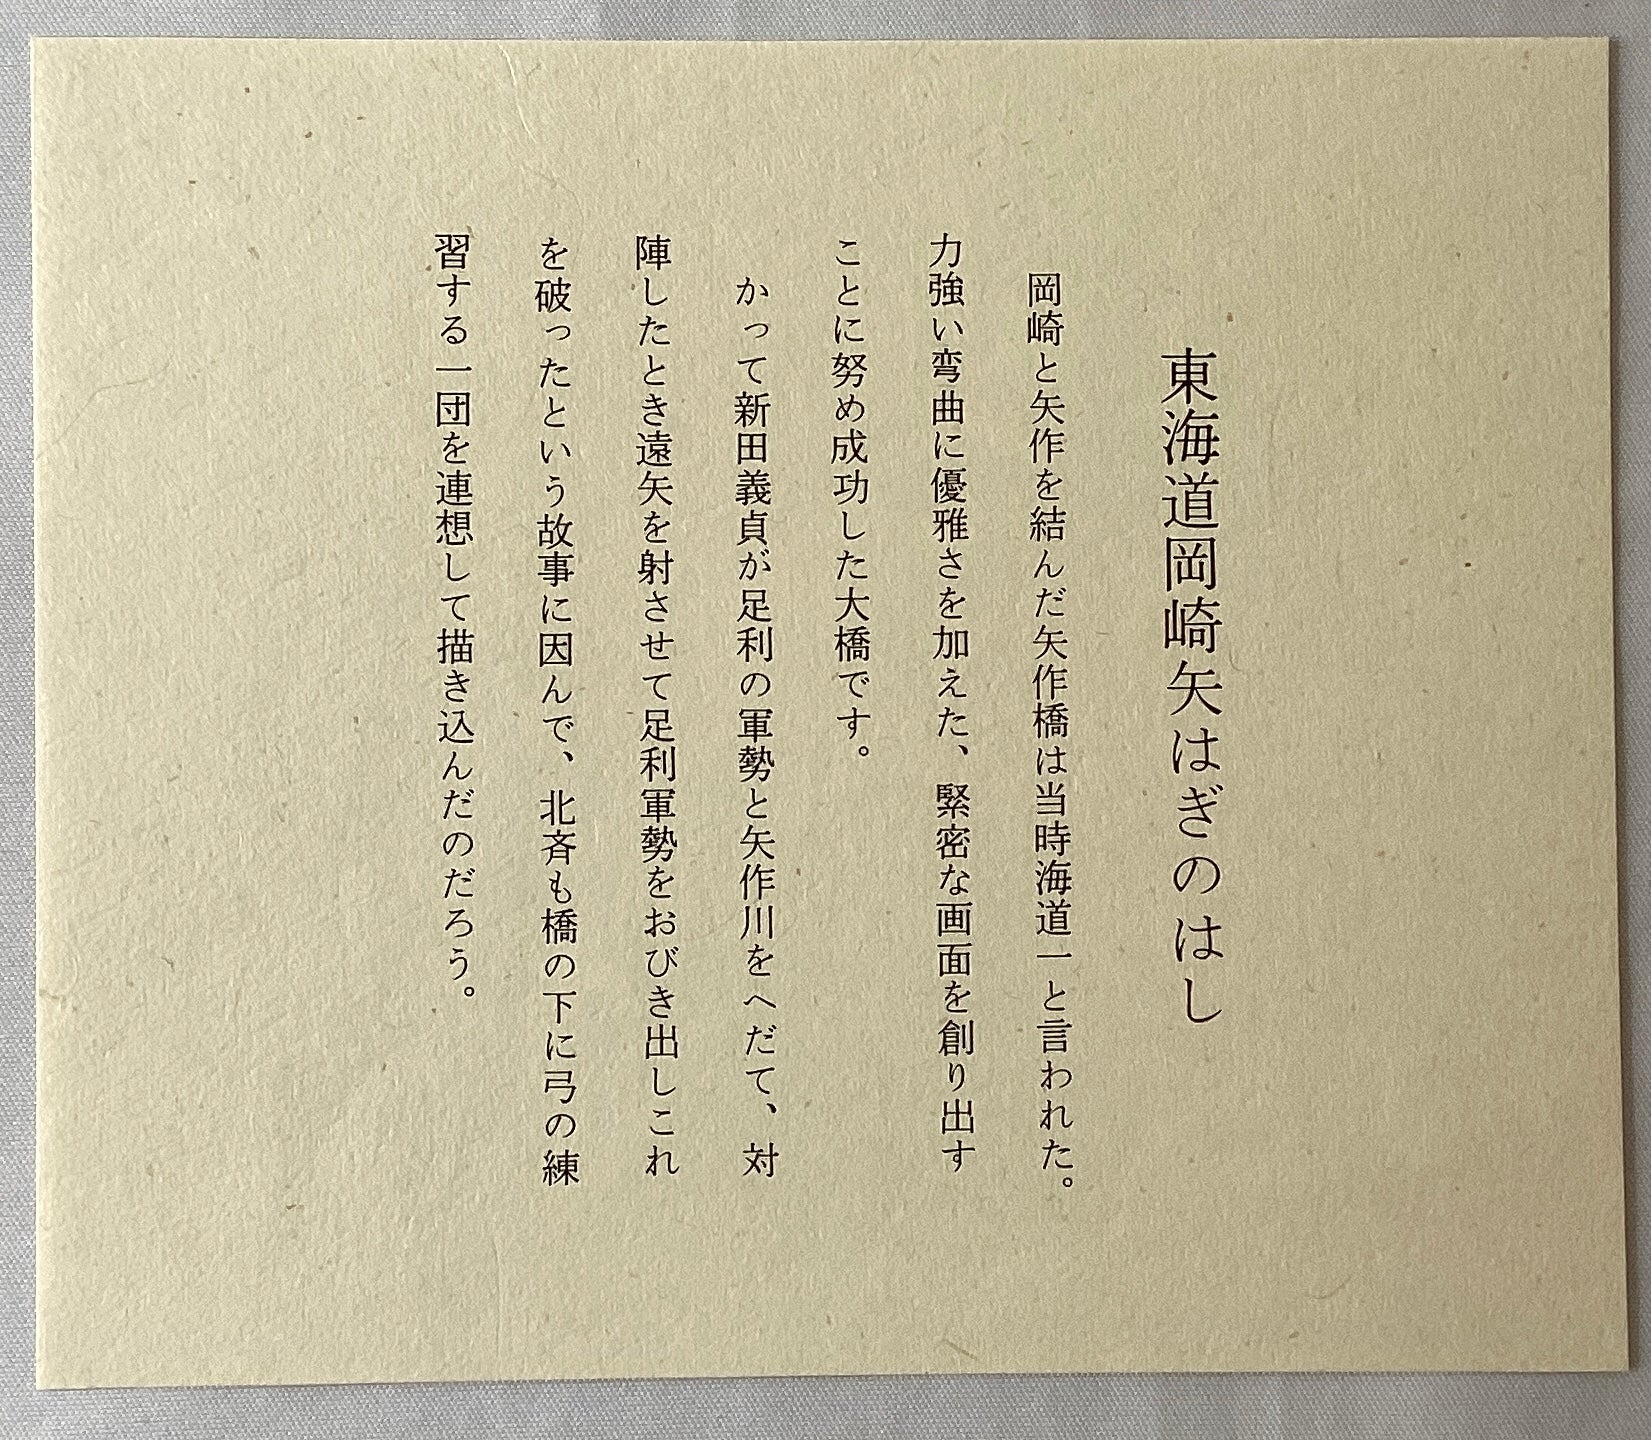 東海道岡崎矢はぎのはし
岡崎と矢作を結んだ矢作橋は当時海道一と言われた。
力強い弯曲に優雅さを加えた、緊密な画面を創り出す
ことに努め成功した大橋です。
かって新田義貞が足利の軍勢と矢作川をへだて、対
陣したとき遠矢を射させて足利軍勢をおびき出しこれ
を破ったという故事に因んで、北斉も橋の下に弓の練
習する一団を連想して描き込んだのだろう。